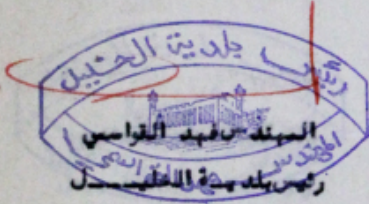 رئيس بلدية الخليل
المهندس فهد القواسمي
رئيس بلديـــة الخليـــــل